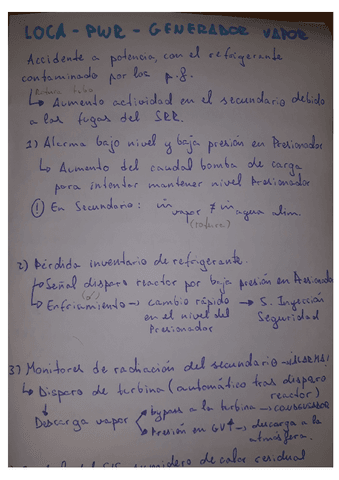 LOCA - PWR - GENERADOR VAPOR
Accidente a potencia, con el refrigerante
contaminado por los p.f.
↳ Aumento actividad en el secundario debido
a las fugas del SRR.
1) Alarma bajo nivel y baja presión en Presionador
↳ Aumento del caudal bomba de carga
para intentar mantener nivel Presionador
(!) En Secundario: ṁ vapor ≠ ṁ agua alim.
(rotura)
2) Pérdida inventario de refrigerante.
↳ Señal disparo reactor por baja presión en Presionador
↳ Enfriamiento → cambio rápido → S. Inyección
en el nivel del Seguridad
Presionador
3) Monitores de radiación del secundario → ¡ALARMA!
↳ Disparo de turbina (automático tras disparo
reactor)
↳ Descarga vapor bypass a la turbina → CONDENSADOR
Presión en GV↑ → descarga a la
atmósfera.
sumidero de calor residual